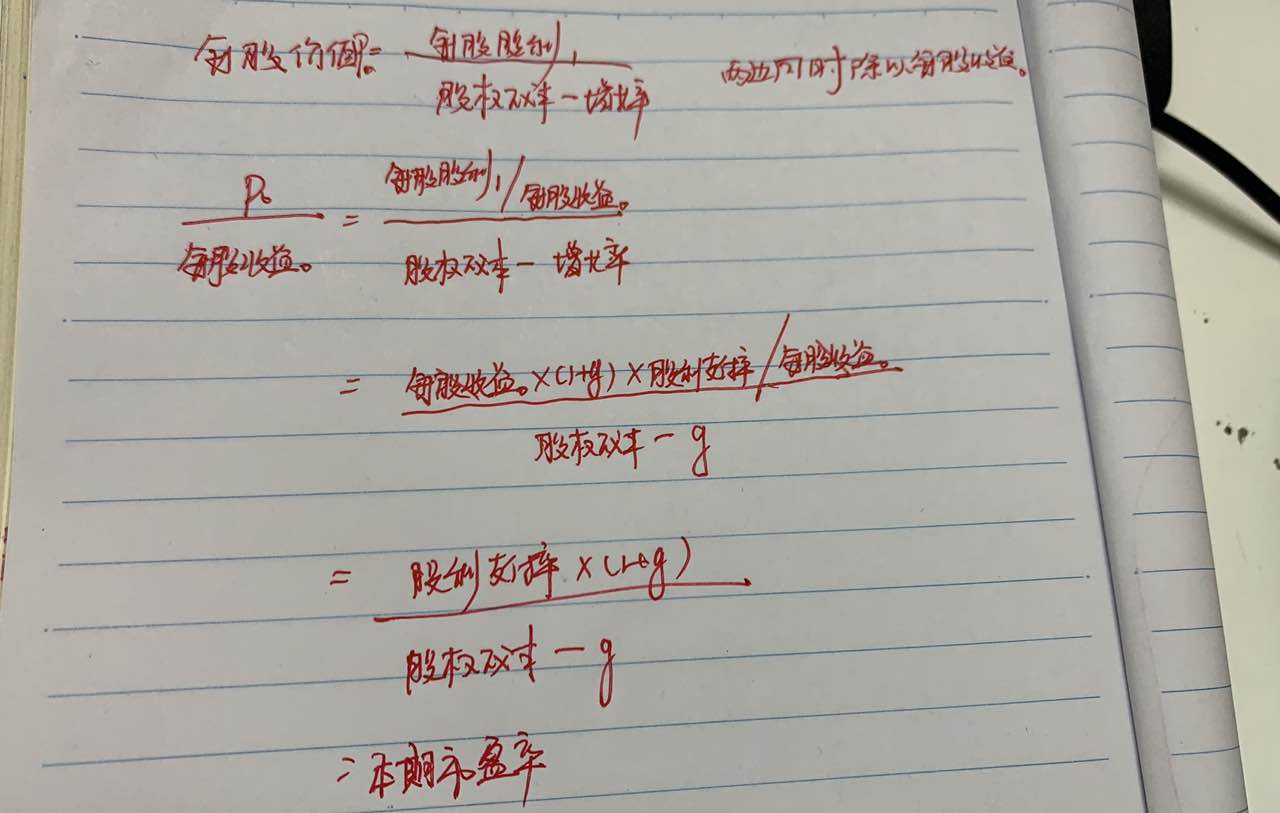 每股价值₀ = 每股股利₁ / 股权成本 - 增长率 两边同时除以每股收益₀
P₀ / 每股收益₀ = 每股股利₁/每股收益₀ / 股权成本 - 增长率
= 每股收益₀×(1+g)×股利支付率/每股收益₀ / 股权成本 - g
= 股利支付率×(1+g) / 股权成本 - g
= 本期市盈率